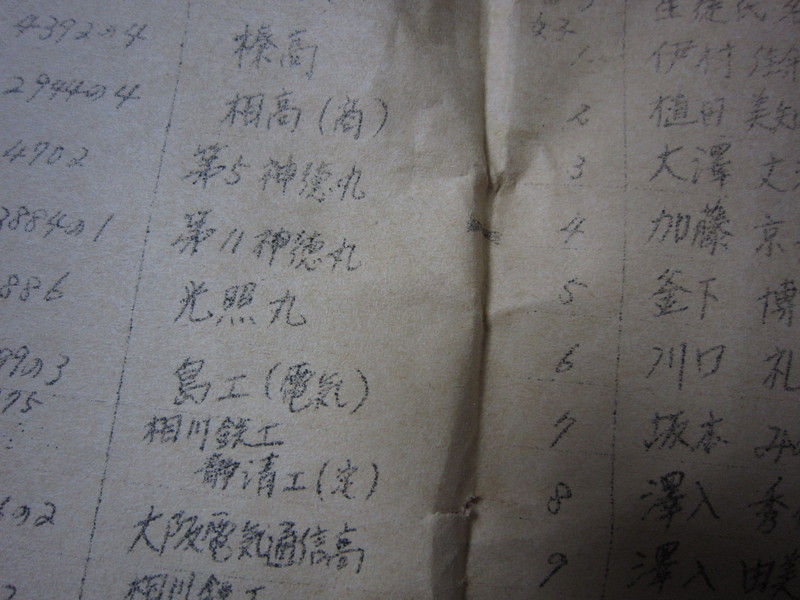 4392の4 榛高 女子
1 伊村
2944の4 相高(商) 2 植田 美
4702 第5神徳丸 3 大澤 文
3884の1 第11神徳丸 4 加藤 京
886 光照丸 5 釜下 博
99の3 島工(電気) 6 川口 礼
75 相川鉄工 7 坂本 み
静清工(定)
の2 大阪電気通信高 8 澤入 秀
相川鉄工 9 澤入 由美